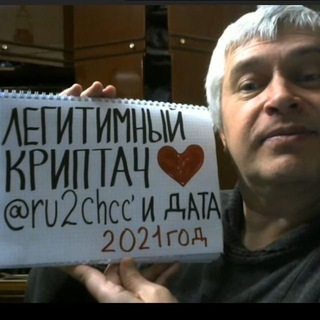 ЛЕГИТИМНЫЙ
КРИПТАЧ
@ru2chcc' И ДАТА
2021 ГОД